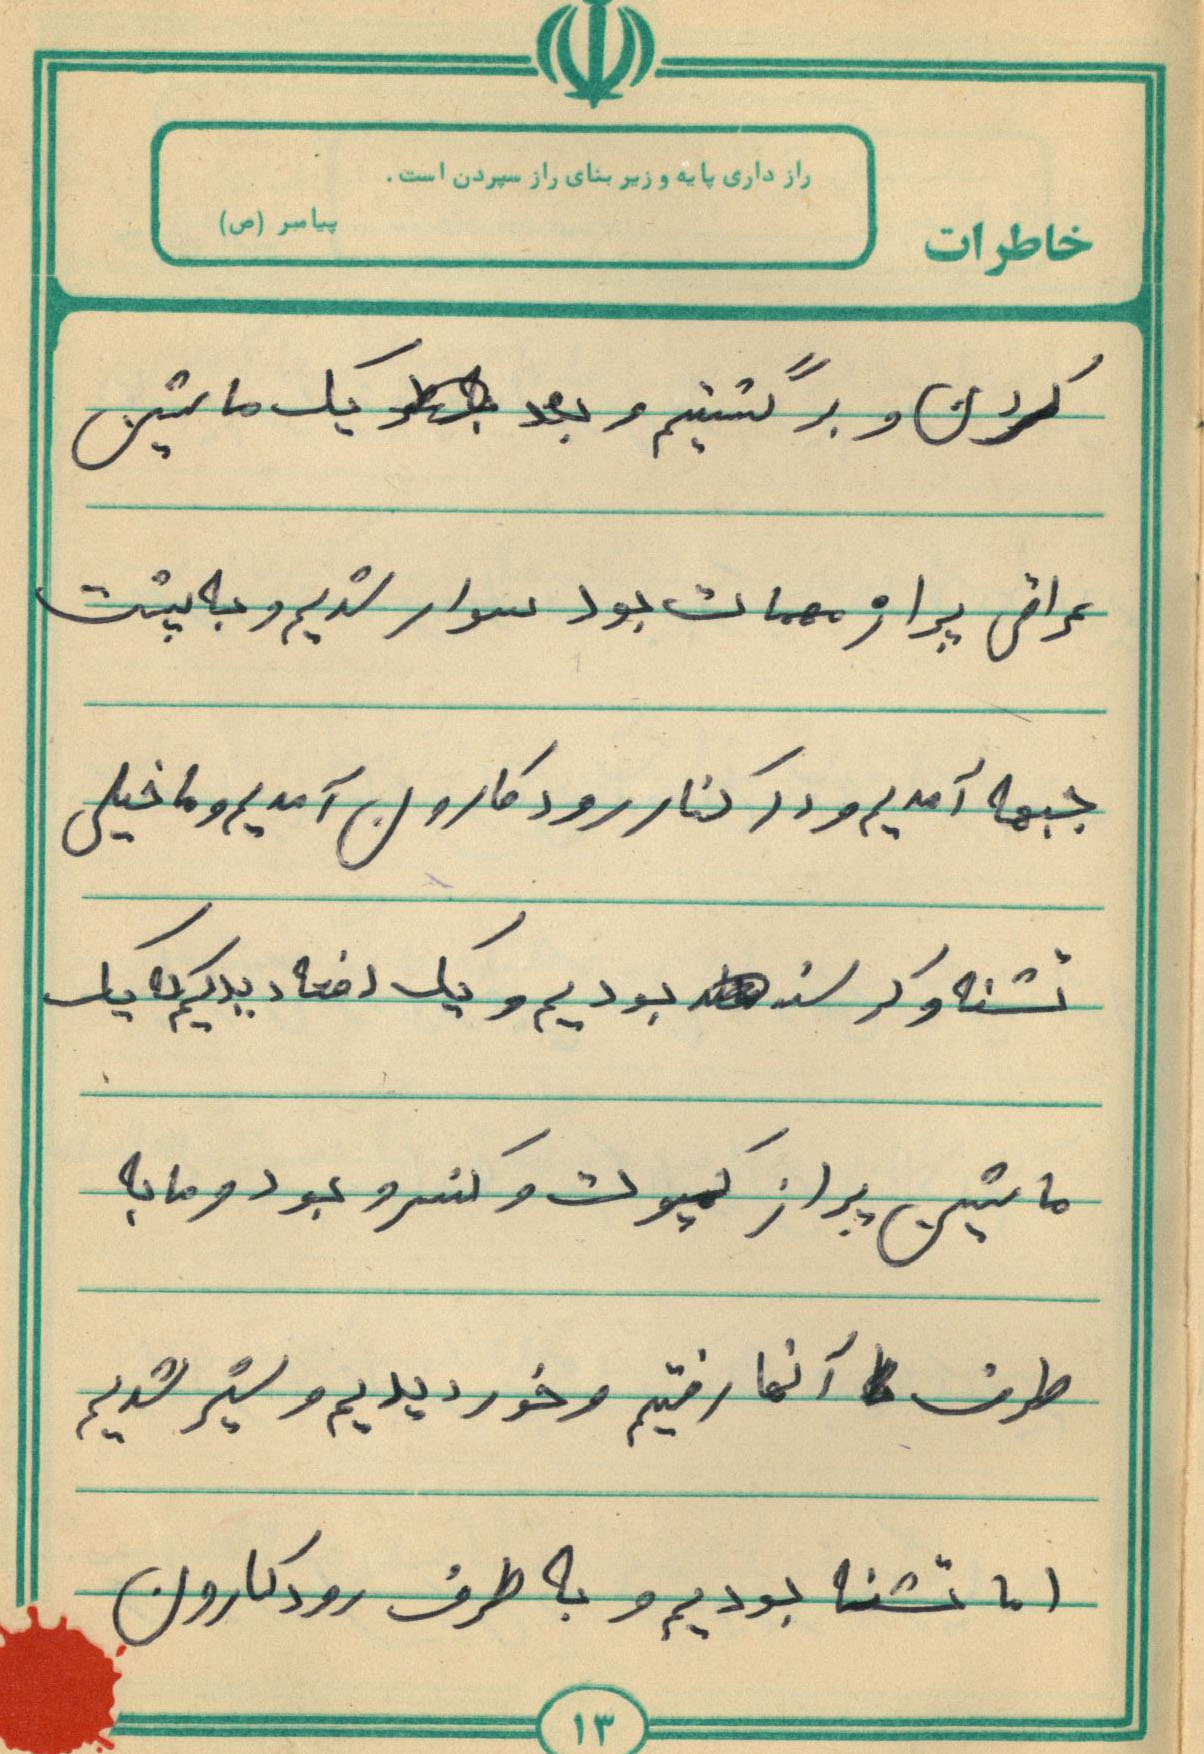 راز داری پایه و زیر بنای راز سپردن است.
پیامبر (ص)
خاطرات
کردن و برگشتیم و بعد یک ماشین
عراقی پر از مهمات بود سوار شدیم و به پشت
جبهه آمدیم و در کنار رود کارون آمدیم و ما خیلی
تشنه و گرسنه بودیم و یک دفعه دیدیم که یک
ماشین پر از کمپوت و کنسرو بود و ما به
طرف آنها رفتیم و خوردیدیم و سیر شدیم
اما تشنه بودیم و به طرف رود کارون
۱۳